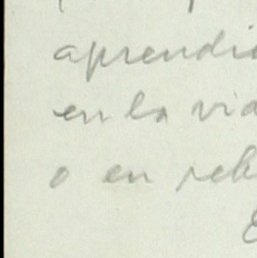 aprendi
en la vid
o en reb